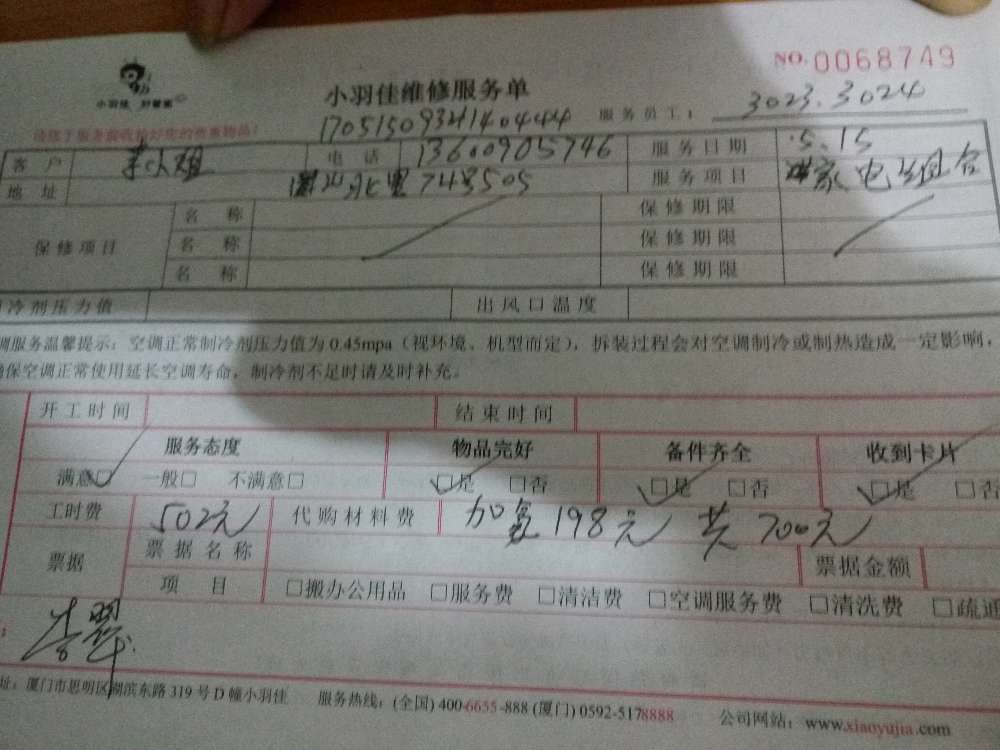 NO.0068749
小羽佳 好管家
小羽佳维修服务单
服务员工： 3023.3024
17051509321404444
客户 李小姐 电话 13600905746 服务日期 5.15
地址 湖北里74号505 服务项目 家电组合
保修项目 名称 保修期限
名称 保修期限
名称 保修期限
冷剂压力值 出风口温度
调服务温馨提示：空调正常制冷剂压力值为0.45mpa（视环境、机型而定），拆装过程会对空调制冷或制热造成一定影响，
确保空调正常使用延长空调寿命，制冷剂不足时请及时补充。
开工时间 结束时间
服务态度 物品完好 备件齐全 收到卡片
满意☑ 一般□ 不满意□ ☑是 □否 ☑是 □否 ☑是 □否
工时费 502元 代购材料费 加氨198元 共700元
票据 票据名称 票据金额
项目 □搬办公用品 □服务费 □清洁费 □空调服务费 □清洗费 □疏通
址：厦门市思明区湖滨东路319号D幢小羽佳 服务热线：(全国) 400-6655-888 (厦门) 0592-5178888 公司网站：www.xiaoyujia.com